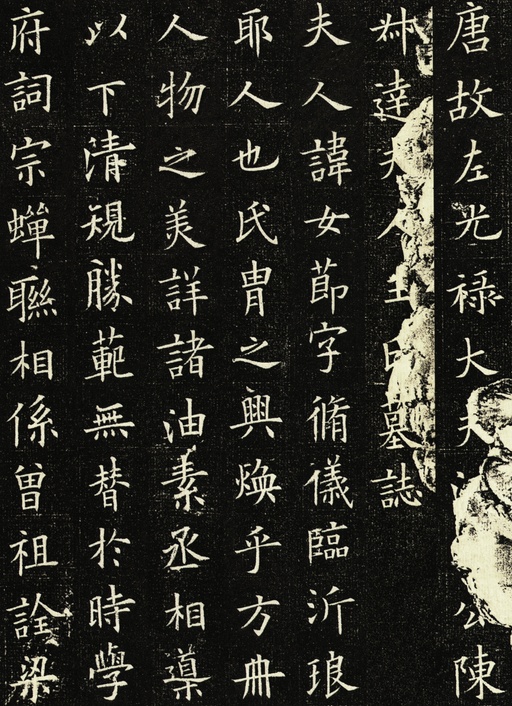 唐故左光祿大夫公陳
叔達夫人王氏墓誌
夫人諱女節字脩儀臨沂琅
耶人也氏胄之興煥乎方冊
人物之美詳諸油素丞相導
以下清規勝範無替於時學
府詞宗蟬聯相係曾祖詮梁